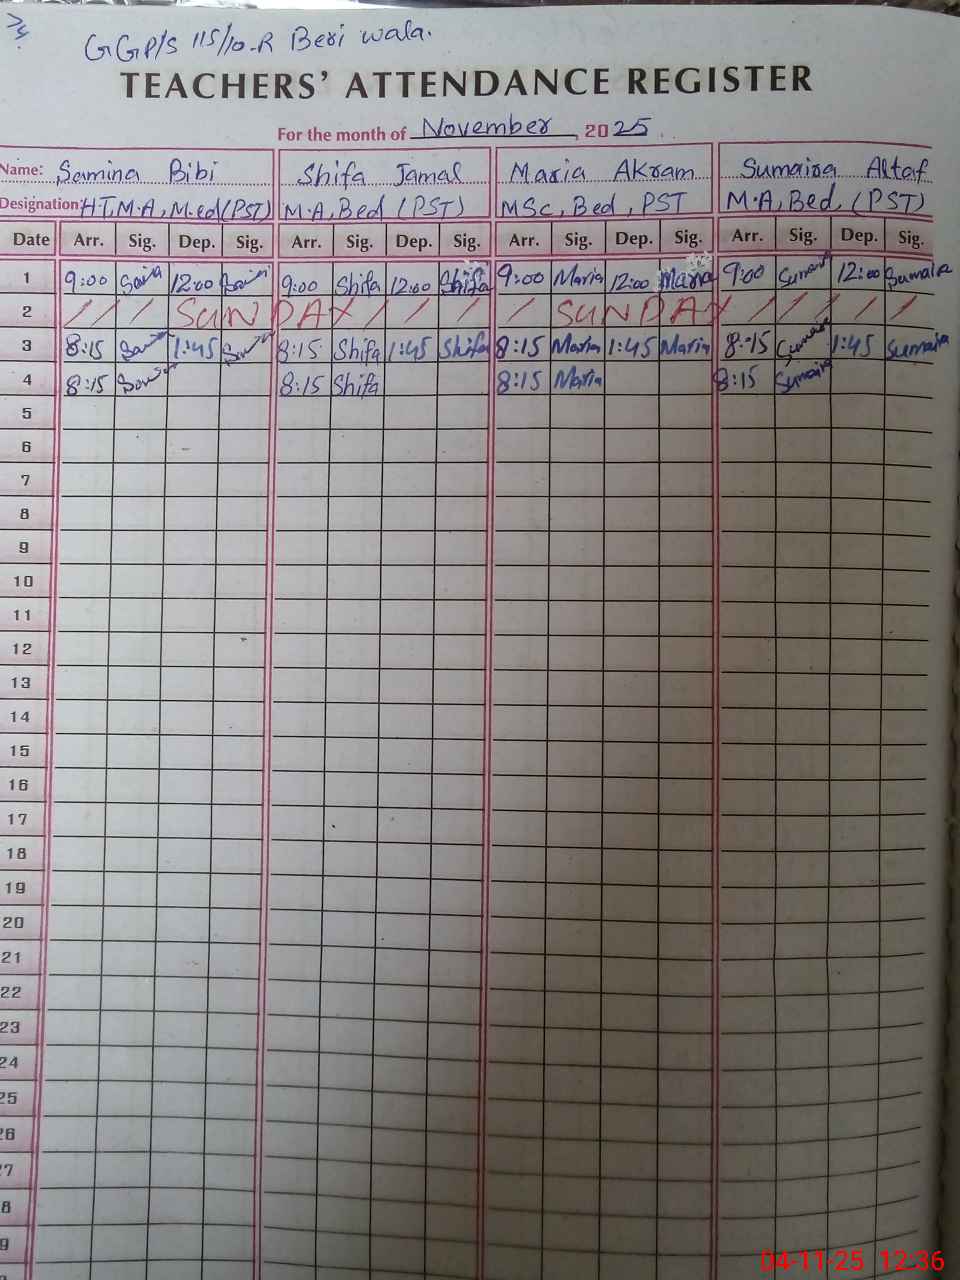 GGP/S 115/10-R Beri wala.
TEACHERS' ATTENDANCE REGISTER
For the month of November, 2025
Name: Samina Bibi Shifa Jamal Maria Akram Sumaira Altaf
Designation: HT, M.A, M.ed (PST) M.A, Bed (PST) MSc, Bed, PST M.A, Bed, (PST)
Date Arr. Sig. Dep. Sig. Arr. Sig. Dep. Sig. Arr. Sig. Dep. Sig. Arr. Sig. Dep. Sig.
1 9:00 12:00 9:00 Shifa 12:00 Shifa 9:00 Maria 12:00 Maria 9:00 Sumaira 12:00 Sumaira
2 / / / SUNDAY / / / / SUNDAY / / / /
3 8:15 1:45 8:15 Shifa 1:45 Shifa 8:15 Maria 1:45 Maria 8:15 Sumaira 1:45 Sumaira
4 8:15 8:15 Shifa 8:15 Maria 8:15 Sumaira
5
6
7
8
9
10
11
12
13
14
15
16
17
18
19
20
21
22
23
24
25
26
04-11-25 12:36